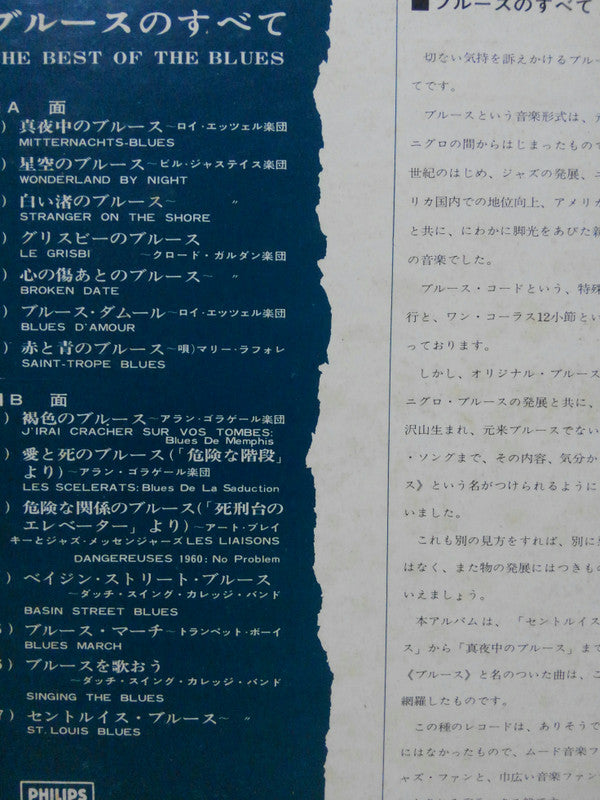 ブルースのすべて
HE BEST OF THE BLUES
A 面
) 真夜中のブルース～ロイ・エッツェル楽団
MITTERNACHTS-BLUES
) 星空のブルース～ビル・ジャステイス楽団
WONDERLAND BY NIGHT
) 白い渚のブルース～ 〃
STRANGER ON THE SHORE
) グリスビーのブルース
LE GRISBI ～クロード・ガルダン楽団
) 心の傷あとのブルース～ 〃
BROKEN DATE
) ブルース・ダムール～ロイ・エッツェル楽団
BLUES D'AMOUR
) 赤と青のブルース～唄)マリー・ラフォレ
SAINT-TROPE BLUES
B 面
) 褐色のブルース～アラン・ゴラゲール楽団
J'IRAI CRACHER SUR VOS TOMBES:
Blues De Memphis
) 愛と死のブルース(「危険な階段」
より)～アラン・ゴラゲール楽団
LES SCELERATS: Blues De La Saduction
) 危険な関係のブルース(「死刑台の
エレベーター」より)～アート・ブレイ
キーとジャズ・メッセンジャーズ LES LIAISONS
DANGEREUSES 1960: No Problem
) ベイジン・ストリート・ブルース
～ダッチ・スイング・カレッジ・バンド
BASIN STREET BLUES
5) ブルース・マーチ～トランペット・ボーイ
BLUES MARCH
6) ブルースを歌おう
～ダッチ・スイング・カレッジ・バンド
SINGING THE BLUES
7) セントルイス・ブルース～ 〃
ST. LOUIS BLUES
PHILIPS
■ブルースのすべて
切ない気持を訴えかけるブルー
てです。
ブルースという音楽形式は、
ニグロの間からはじまったもので
世紀のはじめ、ジャズの発展、ニ
リカ国内での地位向上、アメリカ
と共に、にわかに脚光をあびた新
の音楽でした。
ブルース・コードという、特殊
行と、ワン・コーラス12小節とい
っております。
しかし、オリジナル・ブルース
ニグロ・ブルースの発展と共に、
沢山生まれ、元来ブルースでない
・ソングまで、その内容、気分か
ス》という名がつけられるように
いました。
これも別の見方をすれば、別に
はなく、また物の発展にはつきもの
いえましょう。
本アルバムは、「セントルイス
ス」から「真夜中のブルース」まで
《ブルース》と名のついた曲は、こ
網羅したものです。
この種のレコードは、ありそうで
にはなかったもので、ムード音楽フ
ャズ・ファンと、巾広い音楽ファン